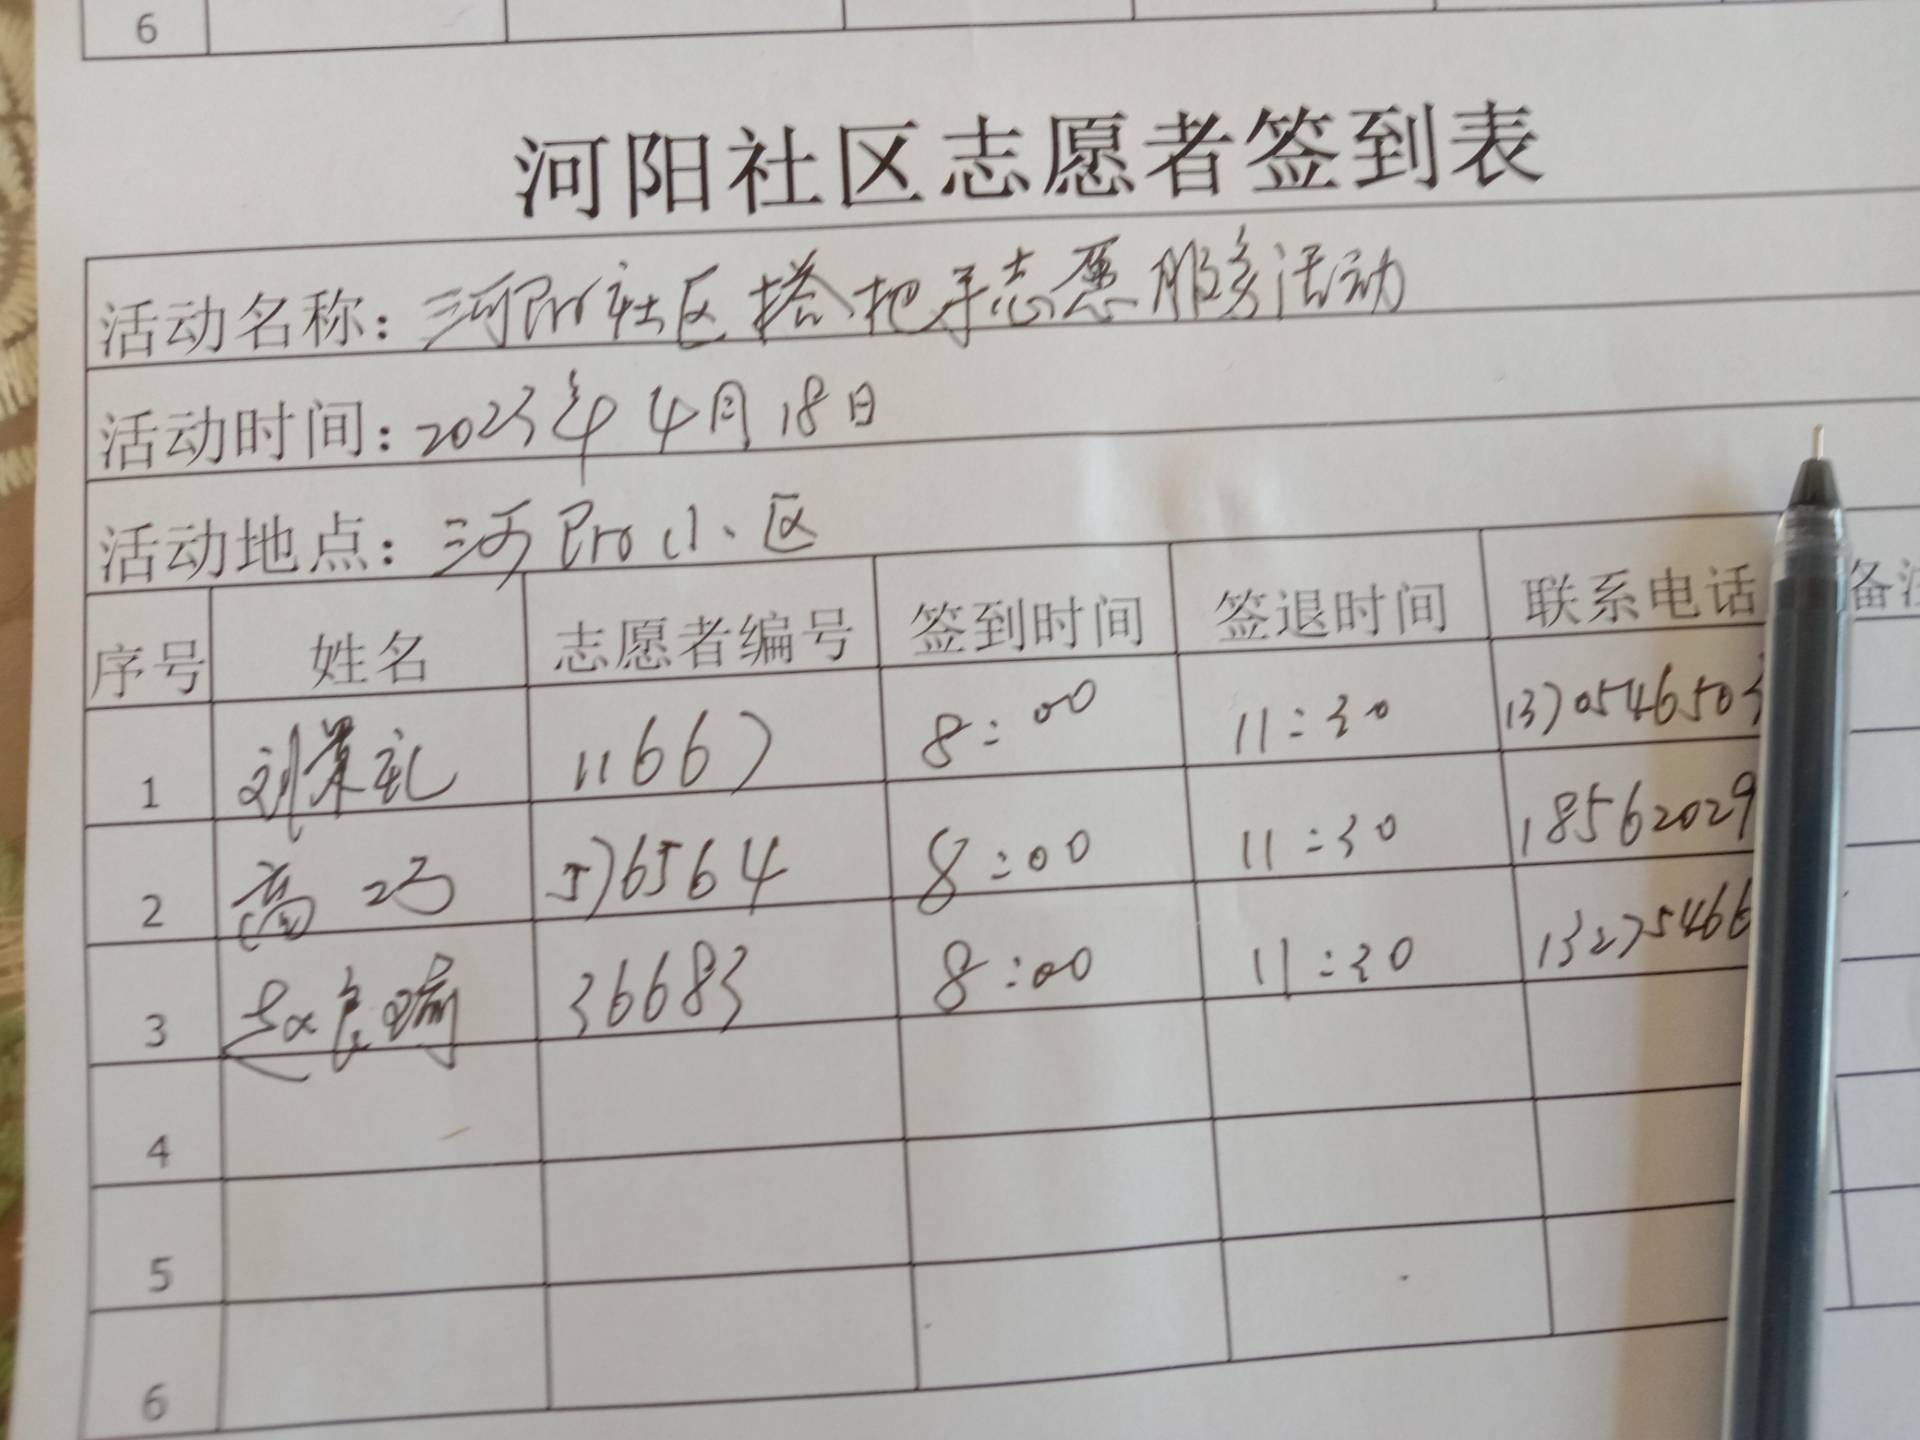 6
河阳社区志愿者签到表
活动名称：河阳社区搭把手志愿服务活动
活动时间：2023年4月18日
活动地点：河阳小区
序号 姓名 志愿者编号 签到时间 签退时间 联系电话 备注
1 刘景礼 11667 8:00 11:30 137054650
2 高巧 576564 8:00 11:30 18562029
3 赵良瑞 36683 8:00 11:30 13275466
4
5
6